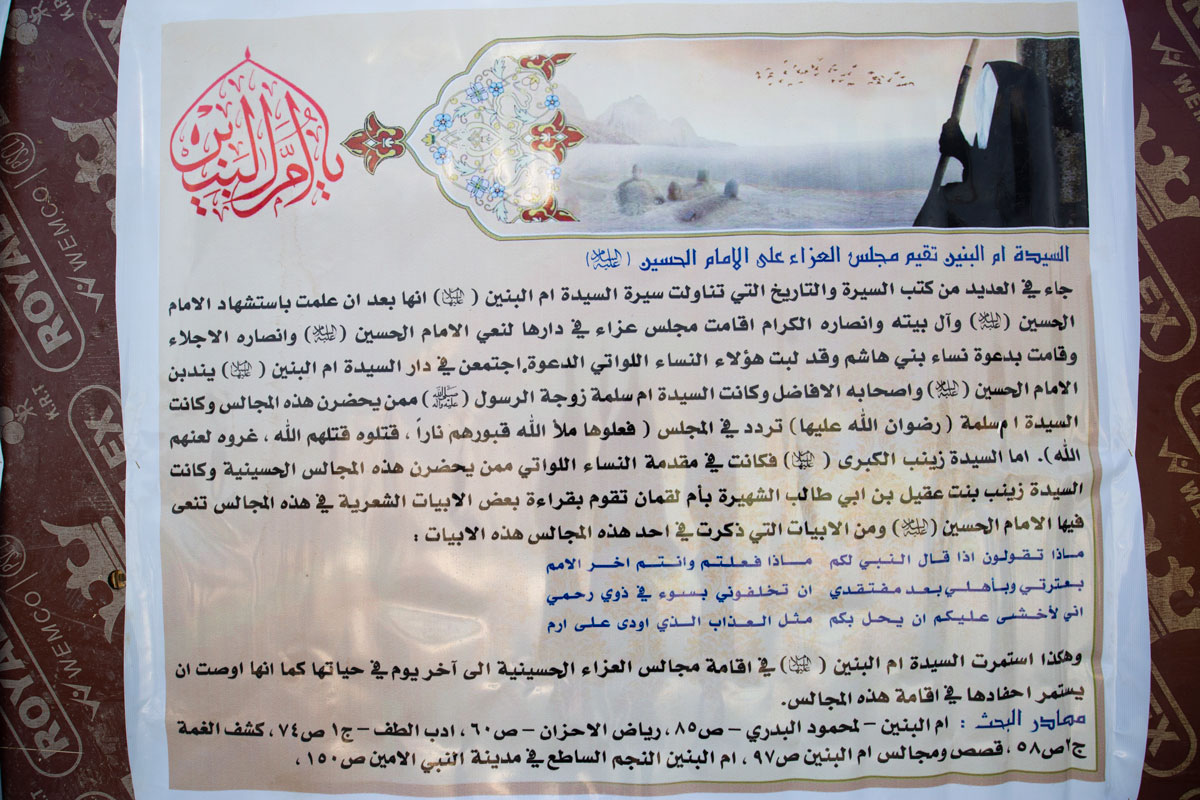 يا أم البنين
السيدة ام البنين تقيم مجلس العزاء على الامام الحسين (عليه السلام)
جاء في العديد من كتب السيرة والتاريخ التي تناولت سيرة السيدة ام البنين (عليها السلام) انها بعد ان علمت باستشهاد الامام
الحسين (عليه السلام) وآل بيته وانصاره الكرام اقامت مجلس عزاء في دارها لنعي الامام الحسين (عليه السلام) وانصاره الاجلاء
وقامت بدعوة نساء بني هاشم وقد لبت هؤلاء النساء اللواتي الدعوة,اجتمعن في دار السيدة ام البنين (عليها السلام) يندبن
الامام الحسين (عليه السلام) واصحابه الافاضل وكانت السيدة ام سلمة زوجة الرسول (صلى الله عليه وآله) ممن يحضرن هذه المجالس وكانت
السيدة ام سلمة (رضوان الله عليها) تردد في المجلس ( فعلوها ملأ الله قبورهم ناراً ، قتلوه قتلهم الله ، غروه لعنهم
الله). اما السيدة زينب الكبرى (عليها السلام) فكانت في مقدمة النساء اللواتي ممن يحضرن هذه المجالس الحسينية وكانت
السيدة زينب بنت عقيل بن ابي طالب الشهيرة بأم لقمان تقوم بقراءة بعض الابيات الشعرية في هذه المجالس تنعى
فيها الامام الحسين (عليه السلام) ومن الابيات التي ذكرت في احد هذه المجالس هذه الابيات :
ماذا تقولون اذا قال النبي لكم ماذا فعلتم وانتم اخر الامم
بعترتي وبأهلي بعد مفتقدي ان تخلفوني بسوء في ذوي رحمي
اني لأخشى عليكم ان يحل بكم مثل العذاب الذي اودى على ارم
وهكذا استمرت السيدة ام البنين (عليها السلام) في اقامة مجالس العزاء الحسينية الى آخر يوم في حياتها كما انها اوصت ان
يستمر احفادها في اقامة هذه المجالس.
مصادر البحث : ام البنين – لمحمود البدري – ص٨٥ ، رياض الاحزان – ص٦٠ ، ادب الطف – ج١ ص٧٤ ، كشف الغمة
ج٢ص٥٨ ، قصص ومجالس ام البنين ص٩٧ ، ام البنين النجم الساطع في مدينة النبي الامين ص١٥٠ ،
ROYAL
WEMCO
KRT
EX
ROYAL
WEMCO